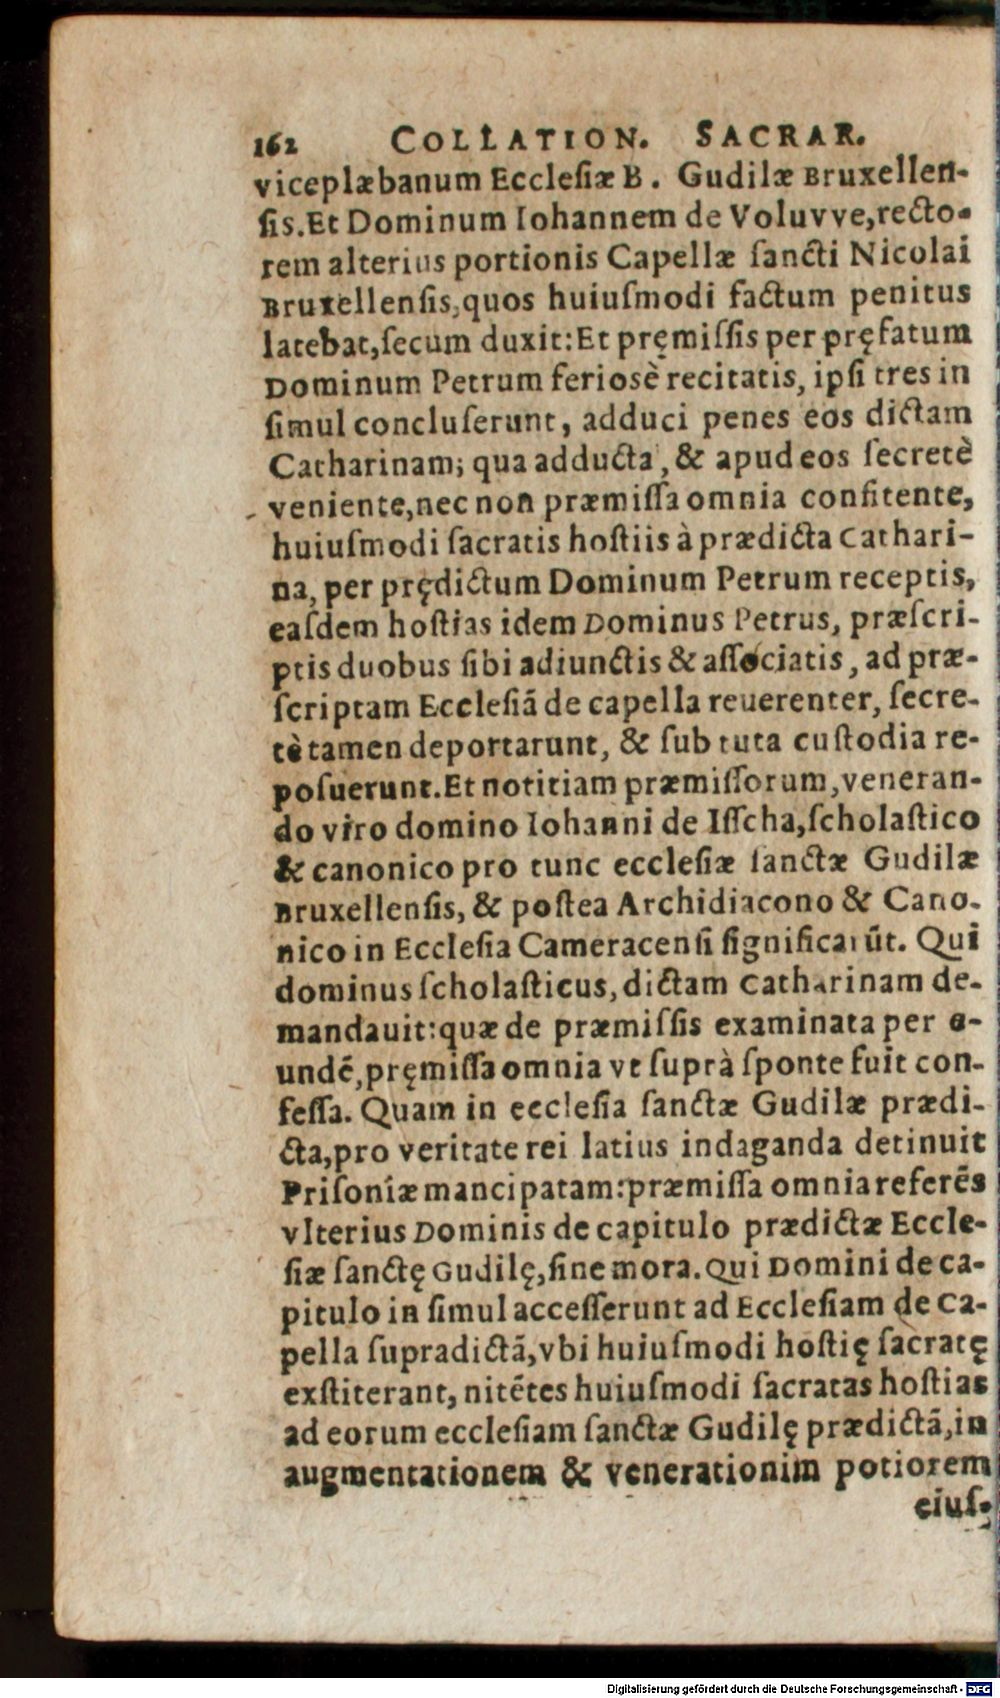 162 COLLATION. SACRAR.
viceplæbanum Eccleſiæ B. Gudilæ Bruxellen-
ſis. Et Dominum Iohannem de Voluvve, recto-
rem alterius portionis Capellæ ſancti Nicolai
Bruxellenſis, quos huiuſmodi factum penitus
latebat, ſecum duxit: Et pręmiſſis per pręfatum
Dominum Petrum ſerioſè recitatis, ipſi tres in
ſimul concluſerunt, adduci penes eos dictam
Catharinam; qua adducta, & apud eos ſecretè
veniente, nec non præmiſſa omnia confitente,
huiuſmodi ſacratis hoſtiis à prædicta Cathari-
na, per prędictum Dominum Petrum receptis,
eaſdem hoſtias idem Dominus Petrus, præſcri-
ptis duobus ſibi adiunctis & aſſociatis, ad præ-
ſcriptam Eccleſiã de capella reuerenter, ſecre-
tè tamen deportarunt, & ſub tuta cuſtodia re-
poſuerunt. Et notitiam præmiſſorum, veneran-
do viro domino Iohanni de Iſſcha, ſcholaſtico
& canonico pro tunc eccleſiæ ſanctæ Gudilæ
Bruxellenſis, & poſtea Archidiacono & Cano-
nico in Eccleſia Cameracenſi ſignificarũt. Qui
dominus ſcholaſticus, dictam Catharinam de-
mandauit: quæ de præmiſſis examinata per e-
undẽ, pręmiſſa omnia vt ſuprà ſponte fuit con-
feſſa. Quam in eccleſia ſanctæ Gudilæ prædi-
cta, pro veritate rei latius indaganda detinuit
Priſoniæ mancipatam: præmiſſa omnia referẽs
vlterius Dominis de capitulo prædictæ Eccle-
ſiæ ſanctę Gudilę, ſine mora. Qui Domini de ca-
pitulo in ſimul acceſſerunt ad Eccleſiam de Ca-
pella ſupradictã, vbi huiuſmodi hoſtię ſacratę
exſtiterant, nitẽtes huiuſmodi ſacratas hoſtias
ad eorum eccleſiam ſanctæ Gudilę prædictã, in
augmentationem & venerationim potiorem
eiuſ-
Digitalisierung gefördert durch die Deutsche Forschungsgemeinschaft - DFG